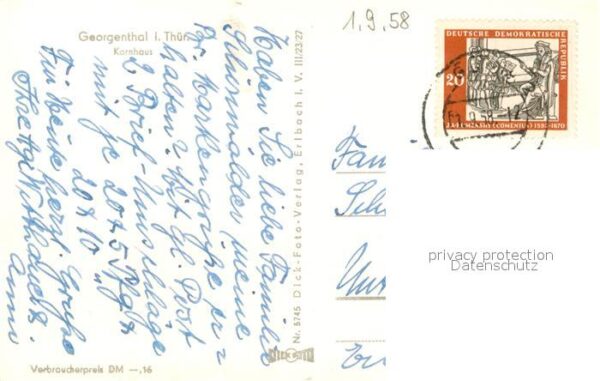 Georgenthal i. Thür.
Kornhaus
1.9.58
DEUTSCHE DEMOKRATISCHE REPUBLIK
20
J.A. KOMENSKÝ (COMENIUS) 1592-1670
Haben Sie liebe Familie
Schönwälder meine
Br. Markengrüße er=
halten? Mit gl. Post
2 Brief-Umschläge
mit je 20+5 Pfg
20+10 "
Für heute herzl. Grüße
Anni
Nr. 5745 Dick-Foto-Verlag, Erlbach i. V. III/23/27
DICK FOTO
Verbraucherpreis DM —.16
Fam
Sch
privacy protection
Datenschutz